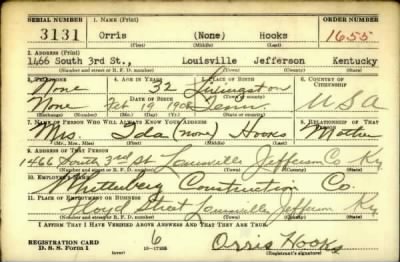 SERIAL NUMBER 1. NAME (Print) ORDER NUMBER
3131 Orris (None) Hooks 1655
(First) (Middle) (Last)
2. ADDRESS (Print)
1466 South 3rd St., Louisville Jefferson Kentucky
(Number and street or R. F. D. number) (Town) (County) (State)
3. TELEPHONE 4. AGE IN YEARS 5. PLACE OF BIRTH 6. COUNTRY OF CITIZENSHIP
None 32 Livingston
DATE OF BIRTH (Town or county)
None Feb 19 1908 Tenn U S A
7. NAME OF PERSON WHO WILL ALWAYS KNOW YOUR ADDRESS 8. RELATIONSHIP OF THAT PERSON
Mrs. Ida (none) Hooks Mother
(Mr., Mrs., Miss) (First) (Middle) (Last)
9. ADDRESS OF THAT PERSON
1466 South 3rd St Louisville Jefferson Co Ky.
(Number and street or R. F. D. number) (Town) (County) (State)
10. EMPLOYER'S NAME
Construction Co.
11. PLACE OF EMPLOYMENT OR BUSINESS
Floyd Street Louisville Jefferson Ky.
(Number and street or R. F. D. number) (Town) (County) (State)
I AFFIRM THAT I HAVE VERIFIED ABOVE ANSWERS AND THAT THEY ARE TRUE.
REGISTRATION CARD 6 Orris Hooks
D. S. S. Form 1 (over) (Registrant's signature)